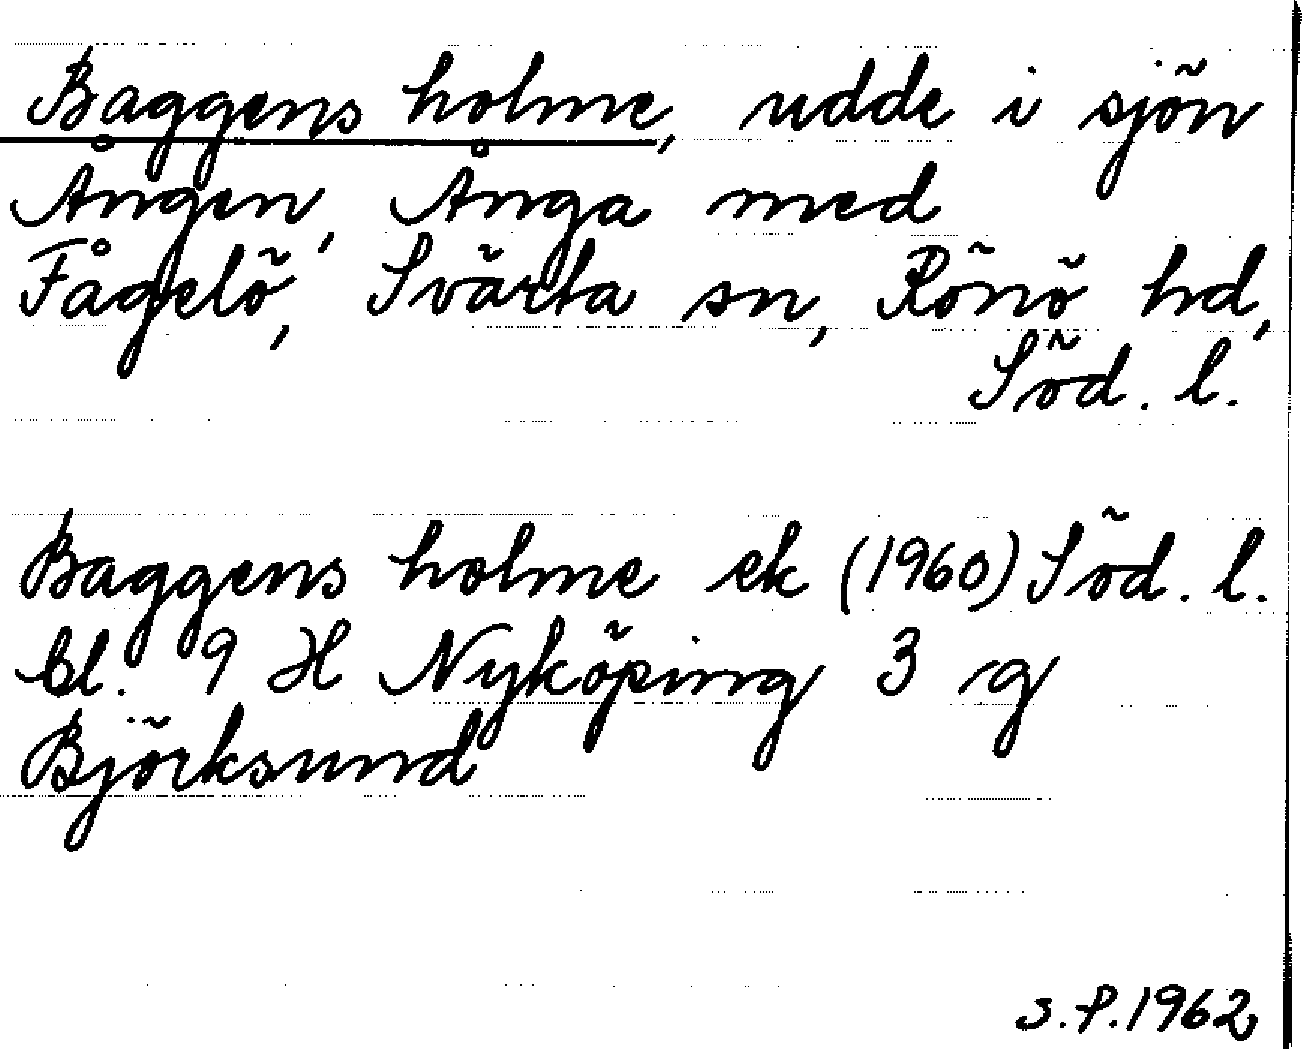 Baggens holme, udde i sjön
Ången, Ånga med
Fågelö, Svärta sn, Rönö hd,
Söd. l.
Baggens holme ek (1960) Söd. l.
bl. 9 H Nyköping 3 g
Björksund
S.P. 1962